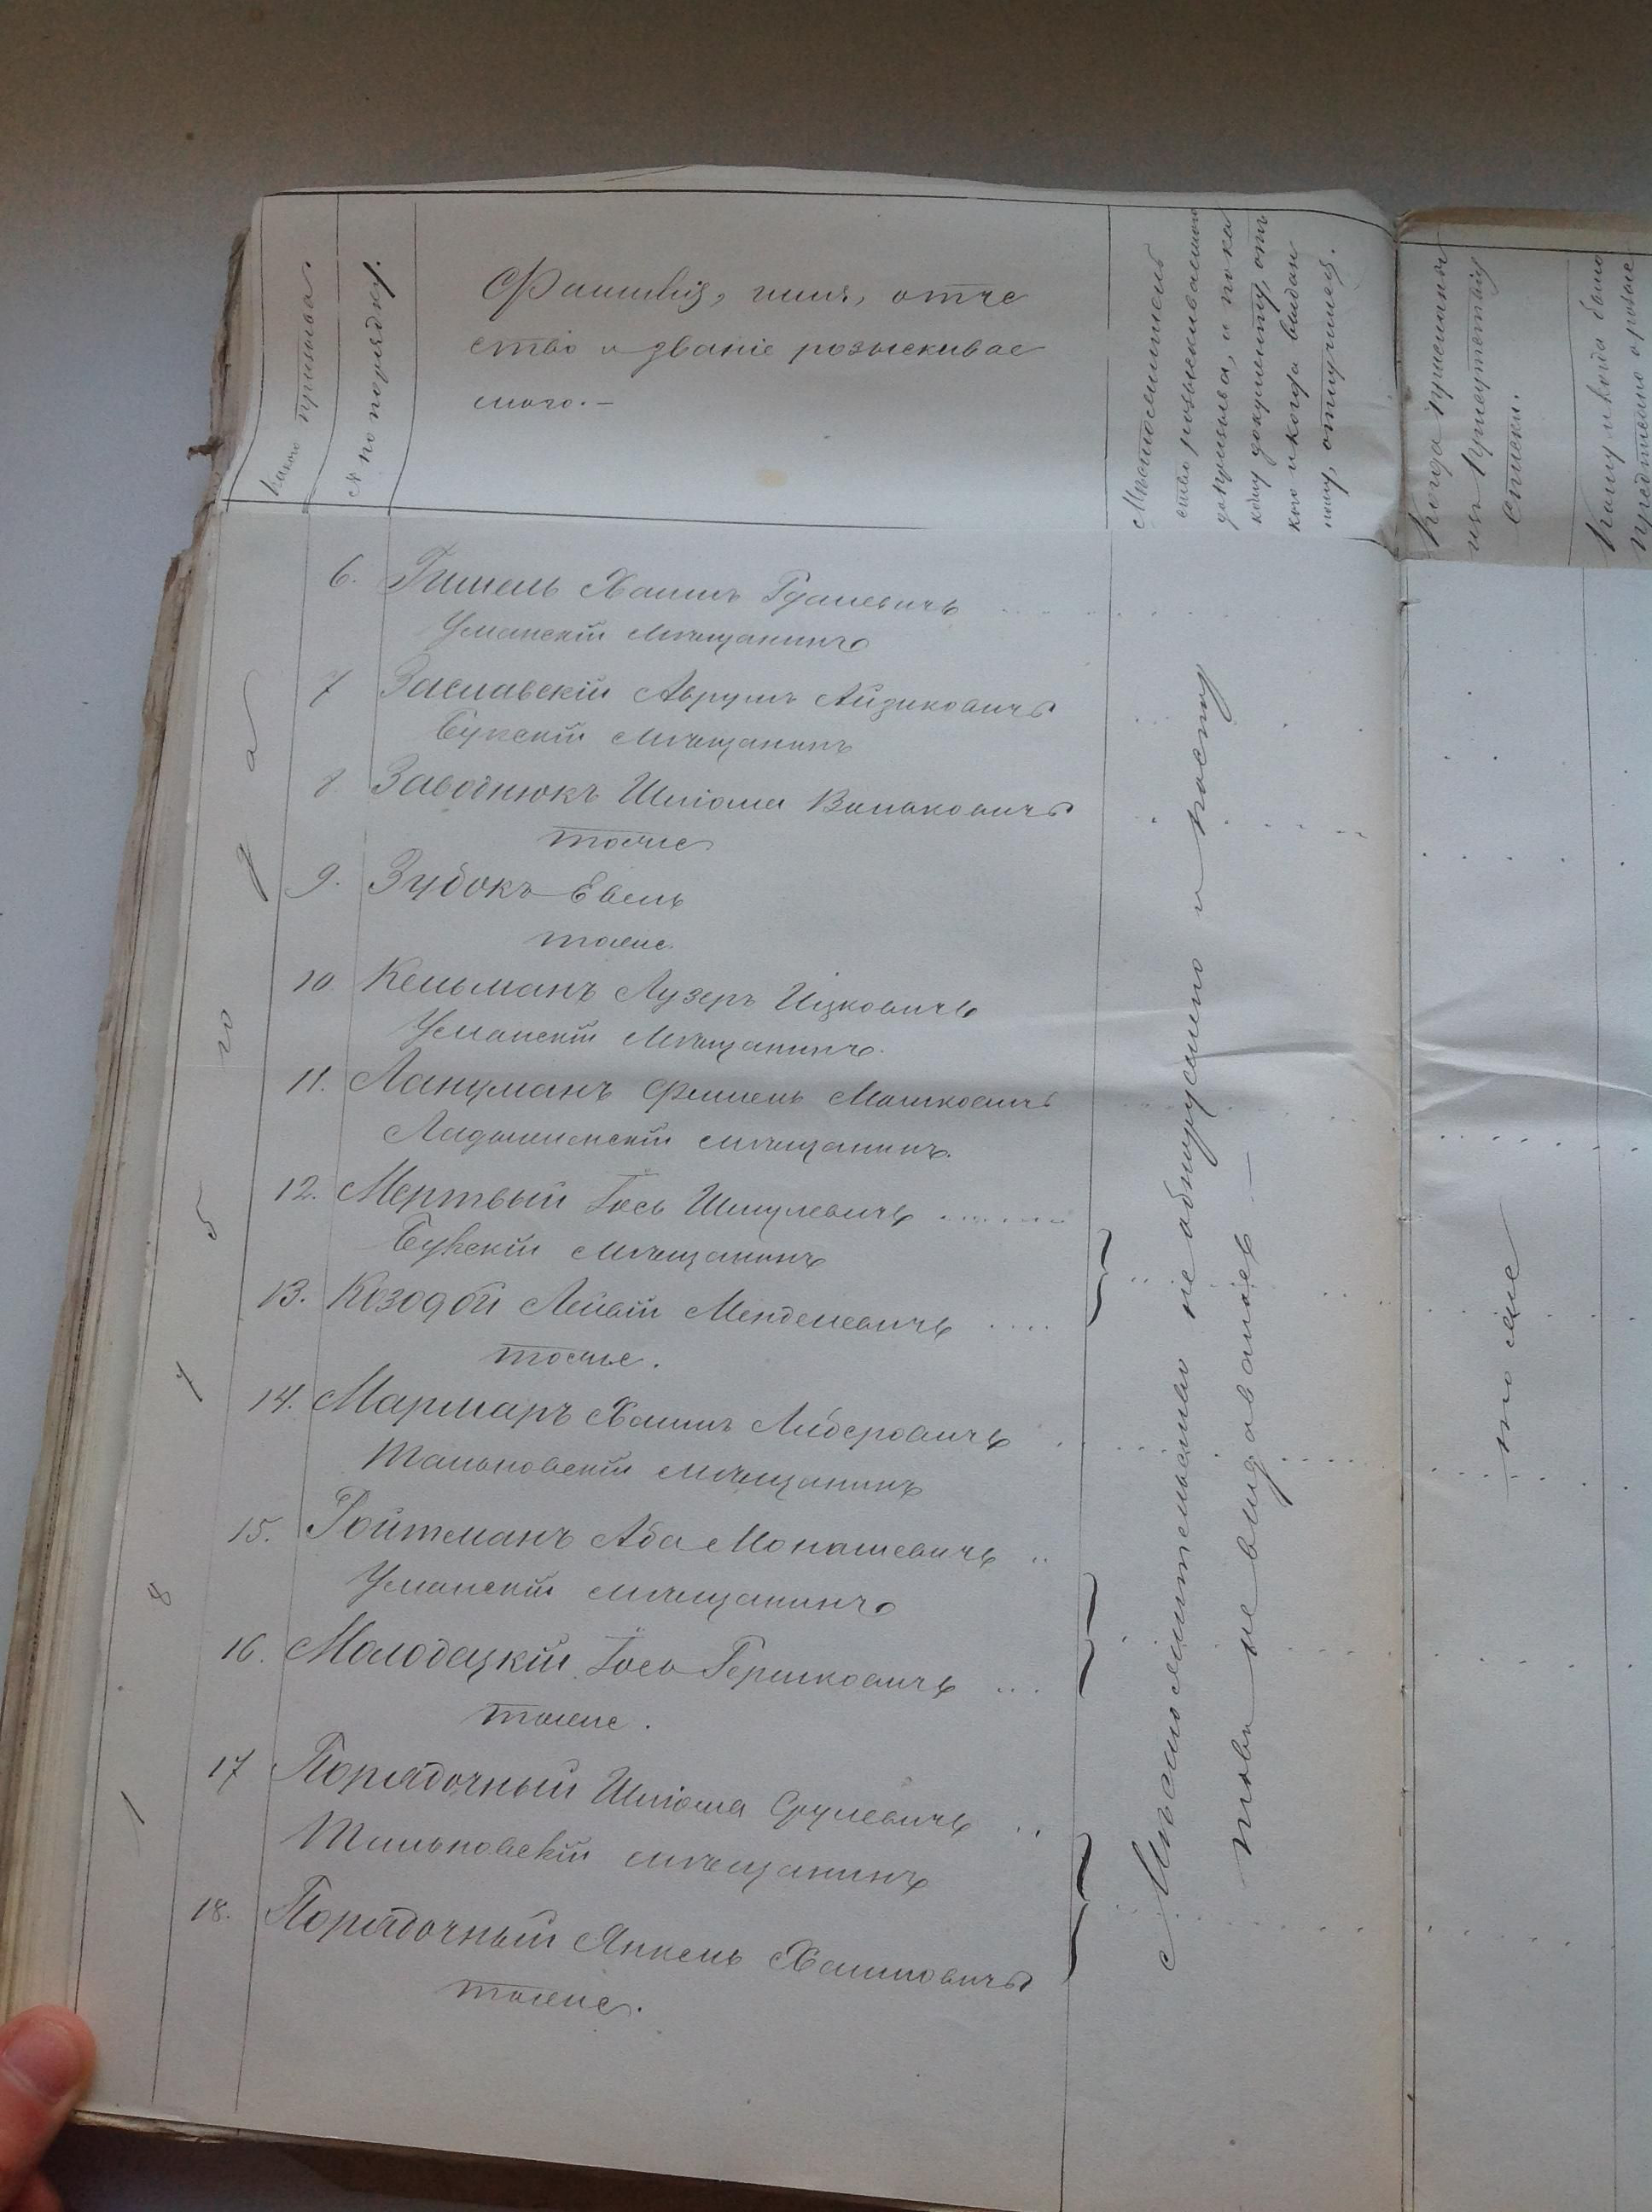 Какого призыва.
№ по порядку.
Фамилія, имя, отче
ство и званіе розыскивае
маго.-
Мѣстожитель
ство розыскиваемаго
до призыва, и по ка
кому документу, отъ
кого и когда выдан
ному, отлучился.
Когда присланы
изъ Присутствія
списки.
Кому и когда было
предписано о розыс
1874 года
6. Гишель Хаимъ Рувиновичъ
Уманскій мѣщанинъ
7 Заславскій Аврумъ Айзиковичъ
Букскій мѣщанинъ
8 Заводнюкъ Шлiома
тоже
9. Зубокъ Евель
тоже
10 Кельманъ Лузеръ Ицковичъ
Уманскій мѣщанинъ.
11. Ланцманъ Фишель Мошковичъ
мѣщанинъ.
12. Мертвый Іось Шмулевичъ
Букскій мѣщанинъ
13. Козодой Лейвій Менделевичъ
тоже.
14. Маршаръ Хаимъ Либеровичъ
Тальновскій мѣщанинъ
15. Ройтманъ Аба Монашевичъ
Уманскій мѣщанинъ
16. Молодецкій Іось Гершковичъ
тоже.
17 Порядочный Шлiома Срулевичъ
Тальновскій мѣщанинъ
18. Порядочный Янкель Хаимовичъ
тоже.
Мѣстожительство не обнаружено и паспор
товъ не выдавалось.-
тоже